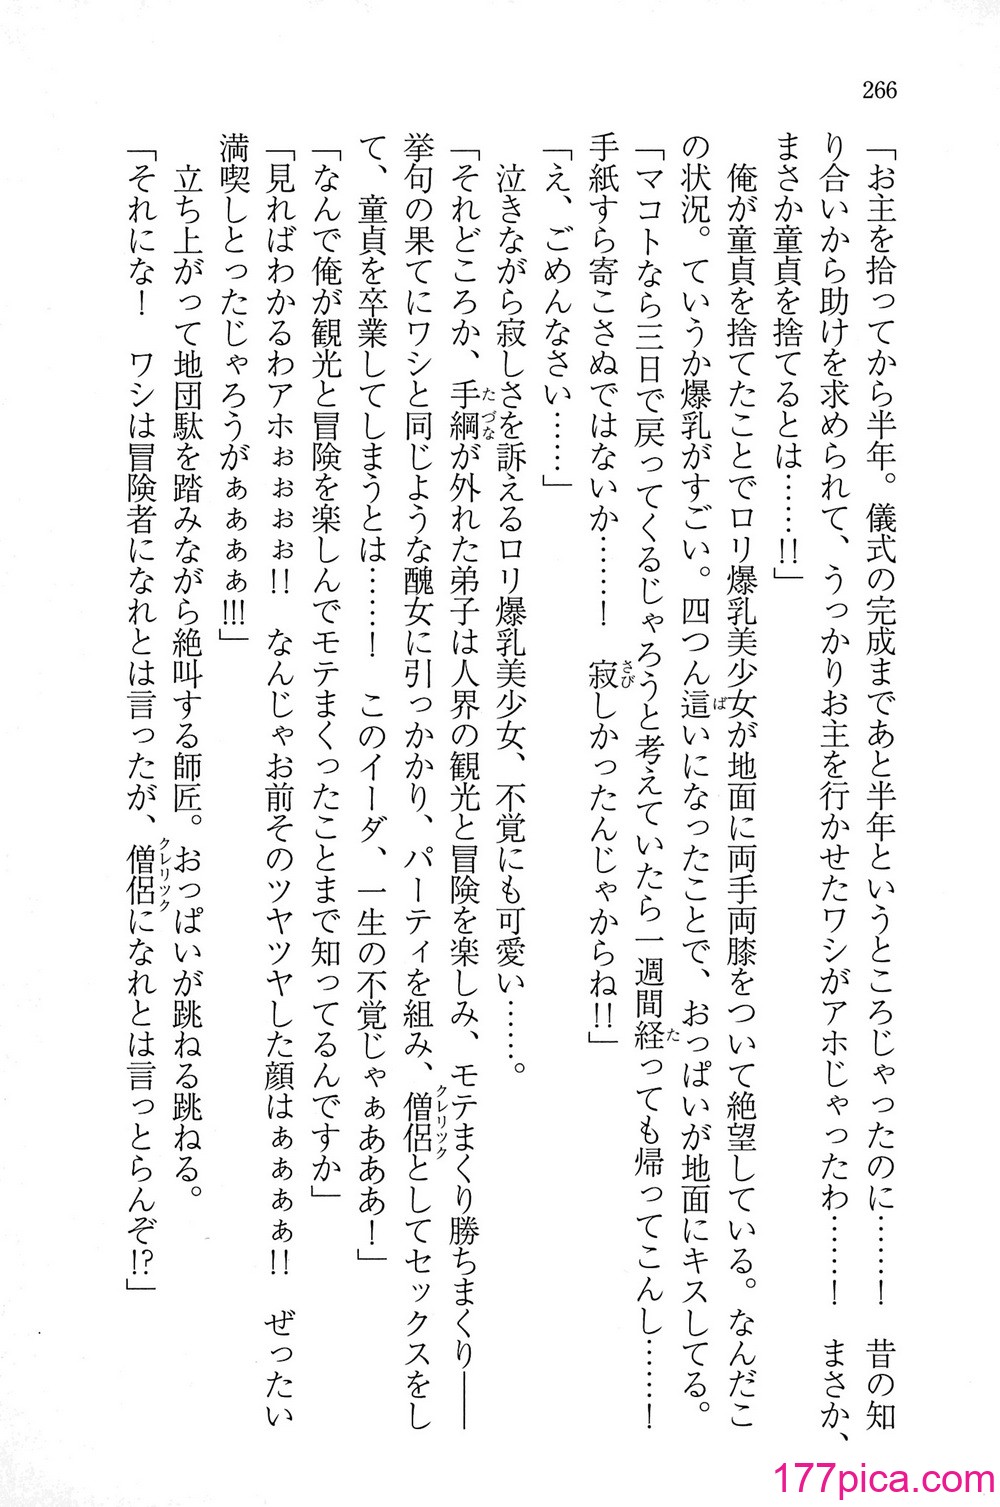 266
「お主を拾ってから半年。儀式の完成まであと半年というところじゃったのに……！　昔の知
り合いから助けを求められて、うっかりお主を行かせたワシがアホじゃったわ……！　まさか、
まさか童貞を捨てるとは……!!」
　俺が童貞を捨てたことでロリ爆乳美少女が地面に両手両膝をついて絶望している。なんだこ
の状況。ていうか爆乳がすごい。四つん這いになったことで、おっぱいが地面にキスしてる。
「マコトなら三日で戻ってくるじゃろうと考えていたら一週間経っても帰ってこんし……！
手紙すら寄こさぬではないか……！　寂しかったんじゃからね!!」
「え、ごめんなさい……」
　泣きながら寂しさを訴えるロリ爆乳美少女、不覚にも可愛い……。
「それどころか、手綱が外れた弟子は人界の観光と冒険を楽しみ、モテまくり勝ちまくり――
挙句の果てにワシと同じような醜女に引っかかり、パーティを組み、僧侶としてセックスをし
て、童貞を卒業してしまうとは……！　このイーダ、一生の不覚じゃぁあああ！」
「なんで俺が観光と冒険を楽しんでモテまくったことまで知ってるんですか」
「見ればわかるわアホぉぉぉぉ!!　なんじゃお前そのツヤツヤした顔はぁぁぁぁ!!　ぜったい
満喫しとったじゃろうがぁぁぁぁ!!!」
　立ち上がって地団駄を踏みながら絶叫する師匠。おっぱいが跳ねる跳ねる。
「それにな！　ワシは冒険者になれとは言ったが、僧侶になれとは言っとらんぞ!?」
177pica.com